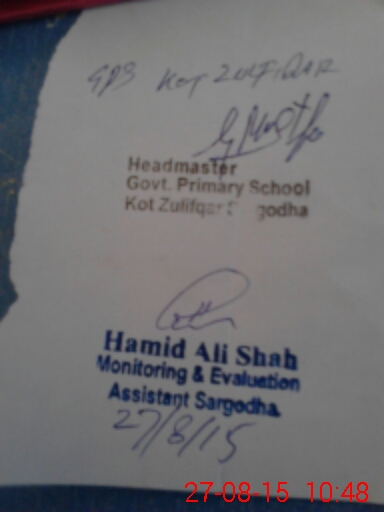 GPS KOT ZULFIQAR
Headmaster
Govt. Primary School
Kot Zulifqar
Hamid Ali Shah
Monitoring & Evaluation
Assistant Sargodha
27/8/15
27-08-15 10:48